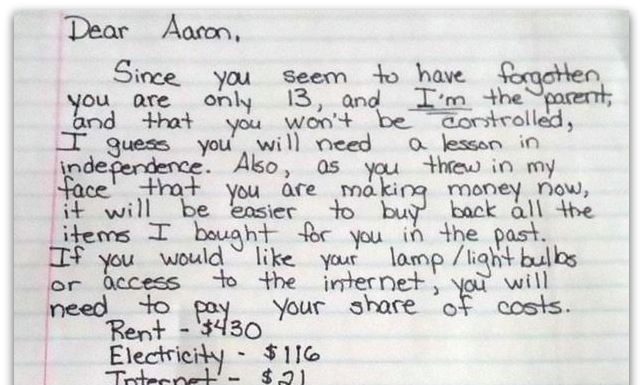 Dear Aaron,
Since you seem to have forgotten
you are only 13, and I'm the parent,
and that you won't be controlled,
I guess you will need a lesson in
independence. Also, as you threw in my
face that you are making money now,
it will be easier to buy back all the
items I bought for you in the past.
If you would like your lamp/lightbulbs
or access to the internet, you will
need to pay your share of costs.
Rent - $430
Electricity - $116
Internet - $21